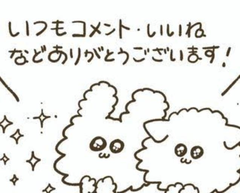 いつもコメント・いいね
などありがとうございます!